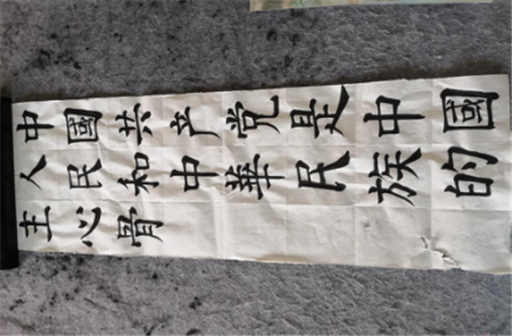 中國共产党是中國
人民和中華民族的
主心骨